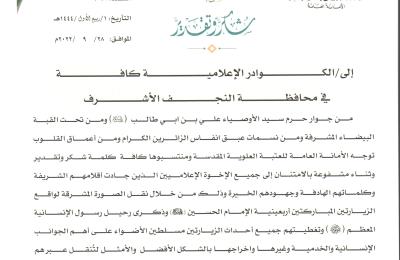 التاريخ: ١/ ربيع الأول/١٤٤٤هـ
الموافق: ٢٨ / ٩ / ٢٠٢٢م
شكر وتقدير
إلى/ الكوادر الإعلامية كافة
في محافظة النجف الأشرف
من جوار حرم سيد الأوصياء علي بن ابي طالب ومن تحت القبة
البيضاء المشرفة ومن نسمات عبق انفاس الزائرين الكرام ومن أعماق القلوب
توجه الأمانة العامة للعتبة العلوية المقدسة ومنتسبوها كافة كلمة شكر وتقدير
وثناء مشفوعة بالامتنان إلى جميع الإخوة الإعلاميين الذين جادت اقلامهم الشريفة
وكلماتهم الهادفة وجهودهم الخيرة وذلك من خلال نقل الصورة المشرقة لواقع
الزيارتين المباركتين اربعينية الإمام الحسين وذكرى رحيل رسول الإنسانية
المعظم وتغطيتهم جميع احداث الزيارتين مسلطين الأضواء على أهم الجوانب
الإنسانية والخدمية وغيرها واخراجها بالشكل الأفضل والأمثل لتنقل عبرهم